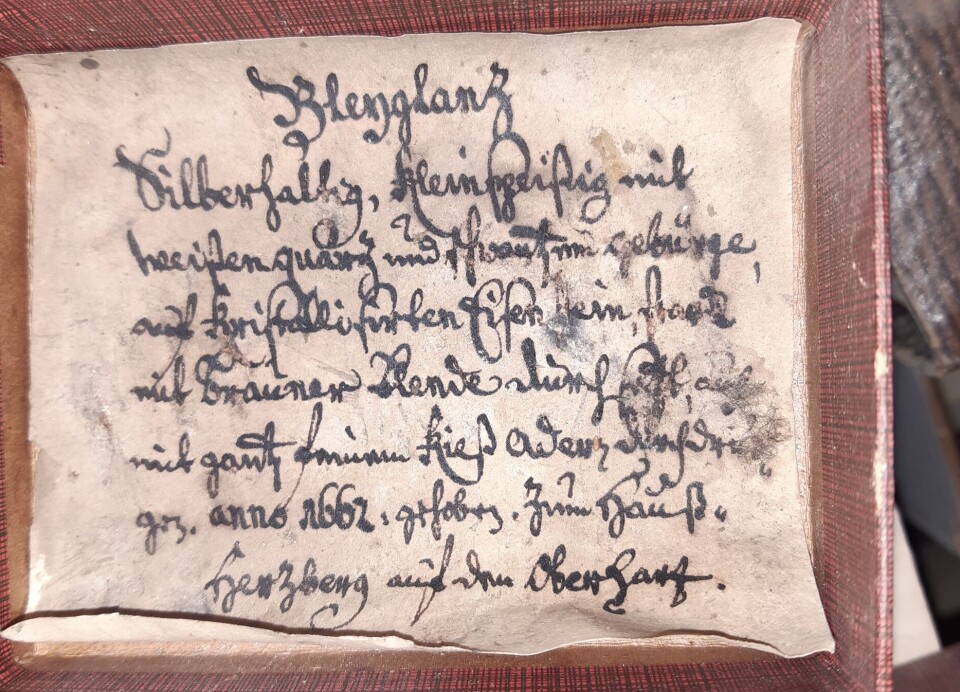 Bleyglanz
Silberhaltig, kleinspeißig mit
weißen quarz und schwartzem Gebürge,
auf kristallisirten Eisenstein, starck
mit brauner Blende durchsetzt, auch
mit gantz feinem Kieß Adern durchdrun„
gen. anno 1662. gehoben. Zum Hauß„
Herzberg auf den Oberhartz.